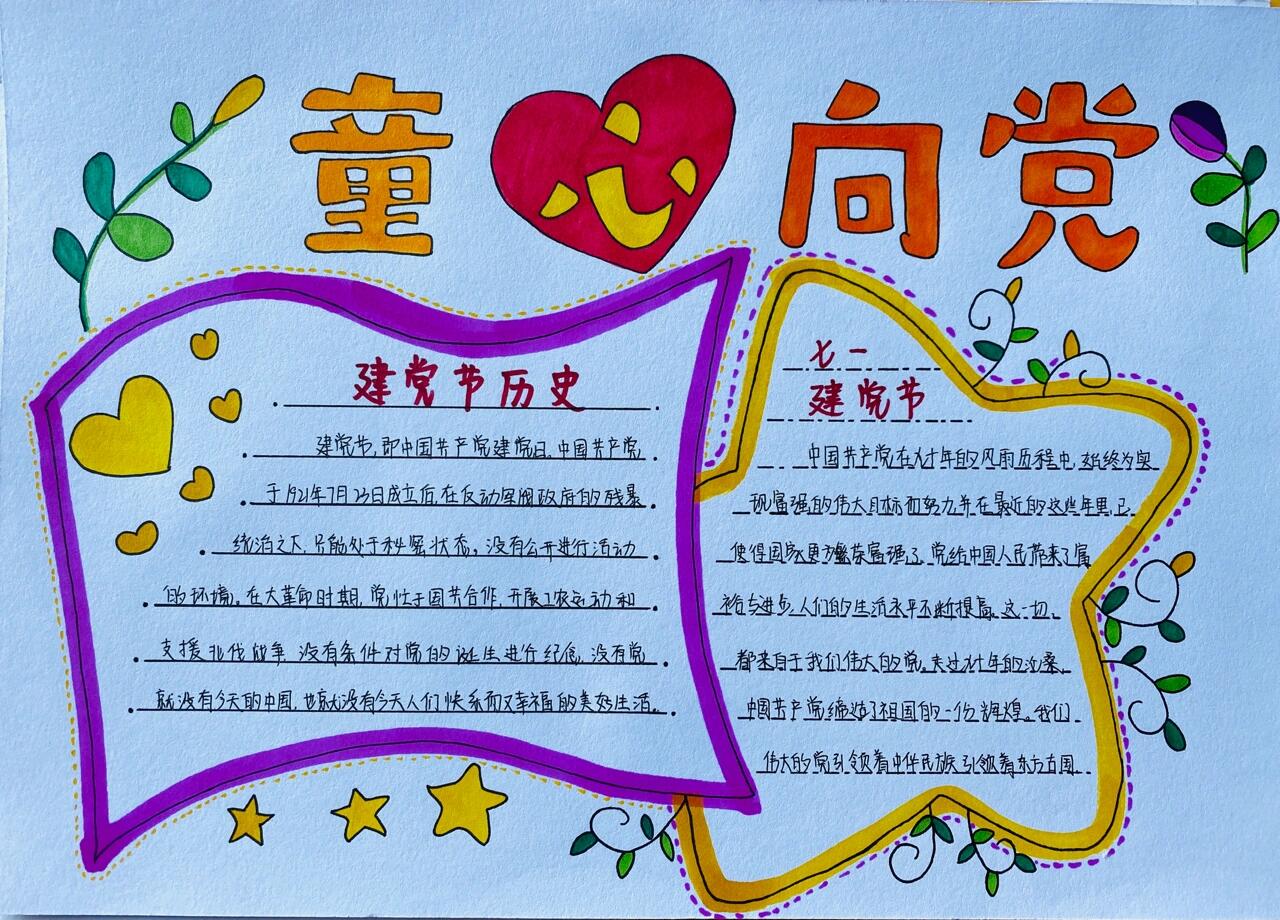 童心向党
建党节历史
建党节,即中国共产党建党日。中国共产党
于1921年7月23日成立后,在反动军阀政府的残暴
统治之下,只能处于秘密状态,没有公开进行活动
的环境。在大革命时期,党忙于国共合作,开展工农运动和
支援北伐战争,没有条件对党的诞生进行纪念,没有党
就没有今天的中国,也就没有今天人们快乐而又幸福的美好生活。
七一
建党节
中国共产党在九十年的风雨历程中,始终为实
现富强的伟大目标而努力并在最近的这些年里,已
使得国家更方繁荣富强了,党给中国人民带来了富
裕与进步,人们的生活水平不断提高。这一切,
都来自于我们伟大的党。走过九十年的沧桑,
中国共产党缔造了祖国的一份辉煌。我们
伟大的党引领着中华民族,引领着东方古国。